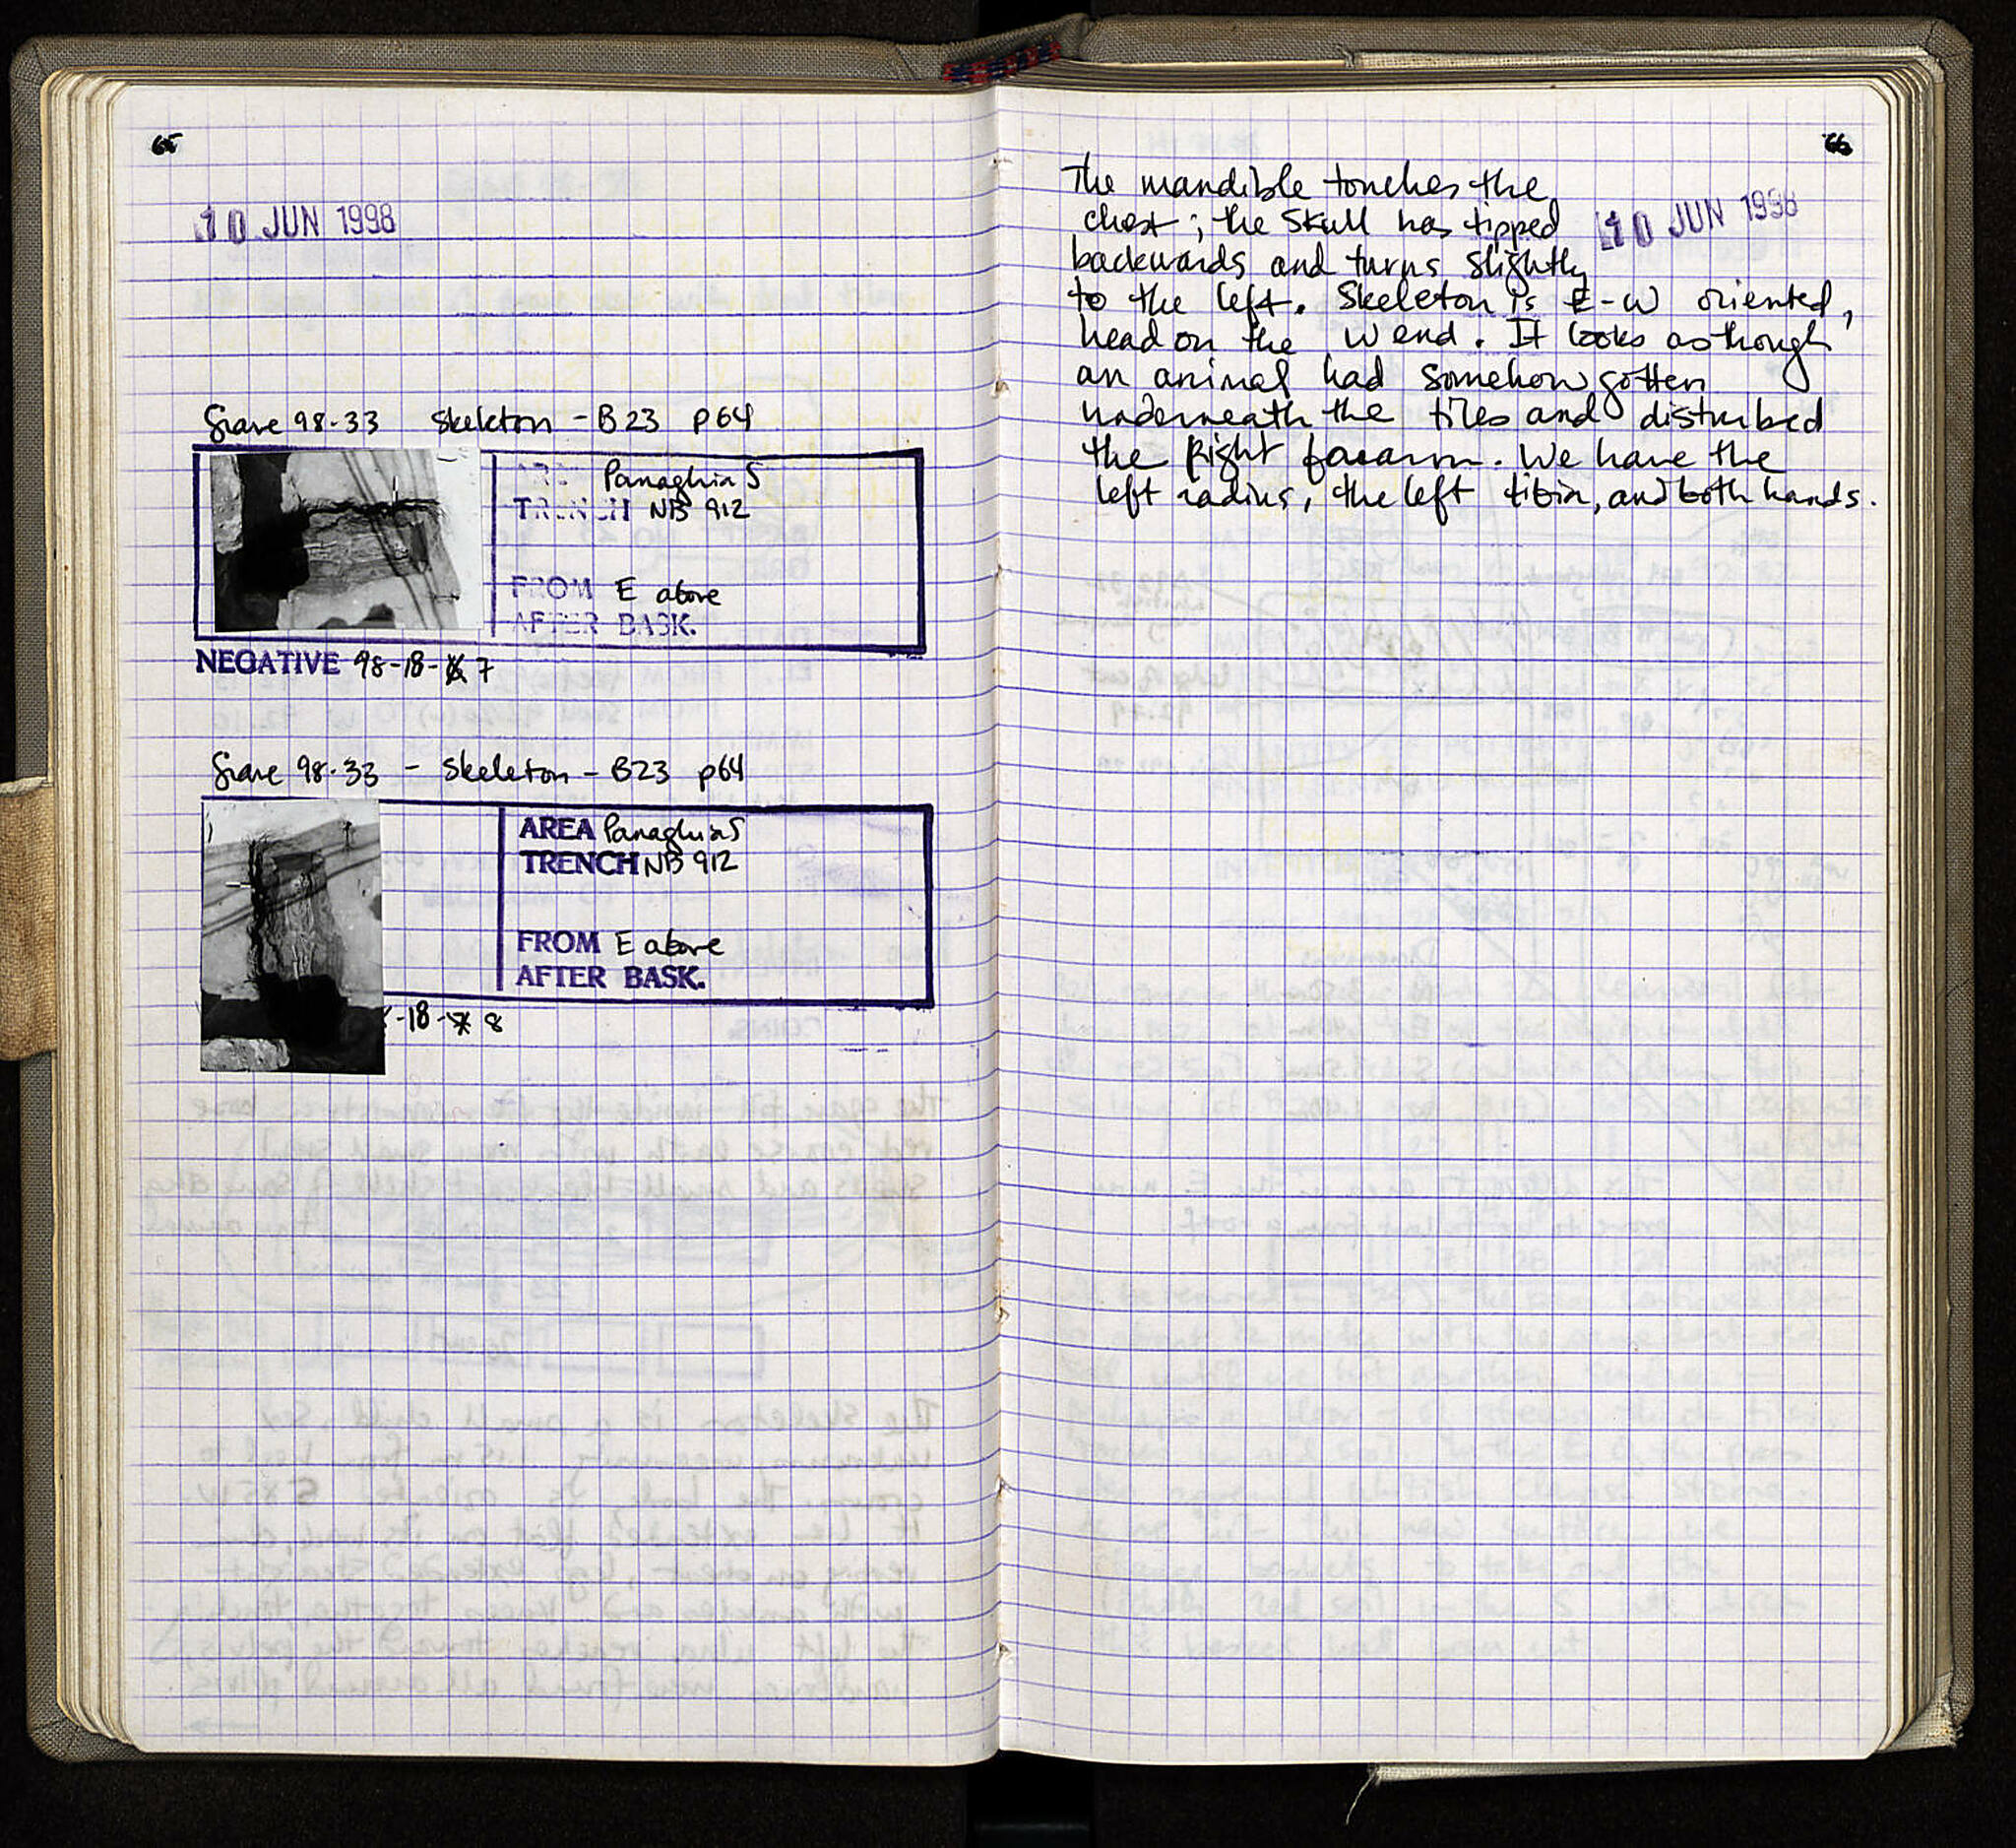 65
10 JUN 1998
Grave 98-33 Skeleton - B23 p64
AREA Panaghia S
TRENCH NB 912
FROM E above
AFTER BASK.
NEGATIVE 98-18-7
Grave 98-33 - Skeleton - B23 p64
AREA Panaghia S
TRENCH NB 912
FROM E above
AFTER BASK.
-18- 8
66
10 JUN 1998
The mandible touches the
chest; the skull has tipped
backwards and turns slightly
to the left. Skeleton is E-W oriented,
head on the W end. It looks as though
an animal had somehow gotten
underneath the tiles and disturbed
the Right forearm. We have the
left radius, the left tibia, and both hands.